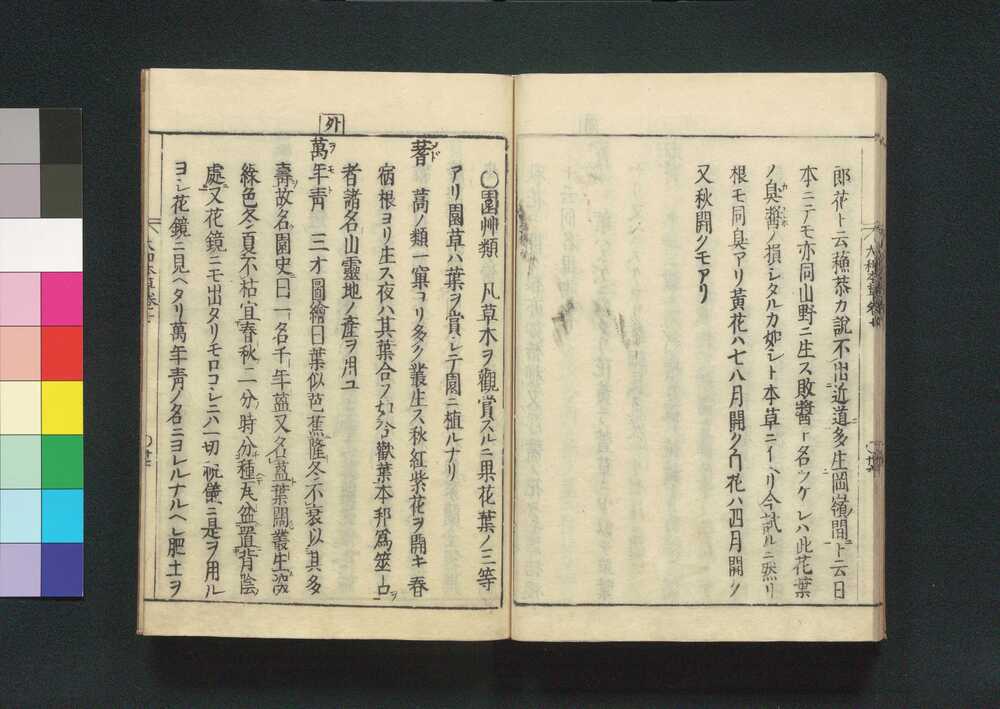 郎花ト云蘓恭カ說不出近道多生岡嶺間ト云日
本ニテモ亦同山野ニ生ス敗醬ト名ツケシハ此花葉
ノ臭醬ノ損シタルカ如シト本草ニイヘリ今試ルニ然リ
根モ同臭アリ黃花ハ七八月開ク白花ハ四月開ク
又秋開クモアリ
大和本草卷七
外
〇園艸類 凡草木ヲ觀賞スルニ果花葉ノ三等
アリ園草ハ葉ヲ賞シテ園ニ植ルナリ
蓍 蒿ノ類一窠ヨリ多ク叢生ス秋紅紫花ヲ開キ春
宿根ヨリ生ス夜ハ其葉合フ如合歡葉本邦爲筮占
者諸名山靈地ノ產ヲ用ユ
萬年靑 三才圖繪曰葉似芭蕉隆冬不衰以其多
壽故名園史曰一名千年蒀又名蒀葉闊叢生深
綠色冬夏不枯宜春秋二分時分種瓦盆置背陰
處又花鏡ニモ出タリモロコシニハ一切祝儀ニ是ヲ用ル
ヨシ花鏡ニ見ヘタリ萬年靑ノ名ニヨレルナルヘシ肥土ヲ